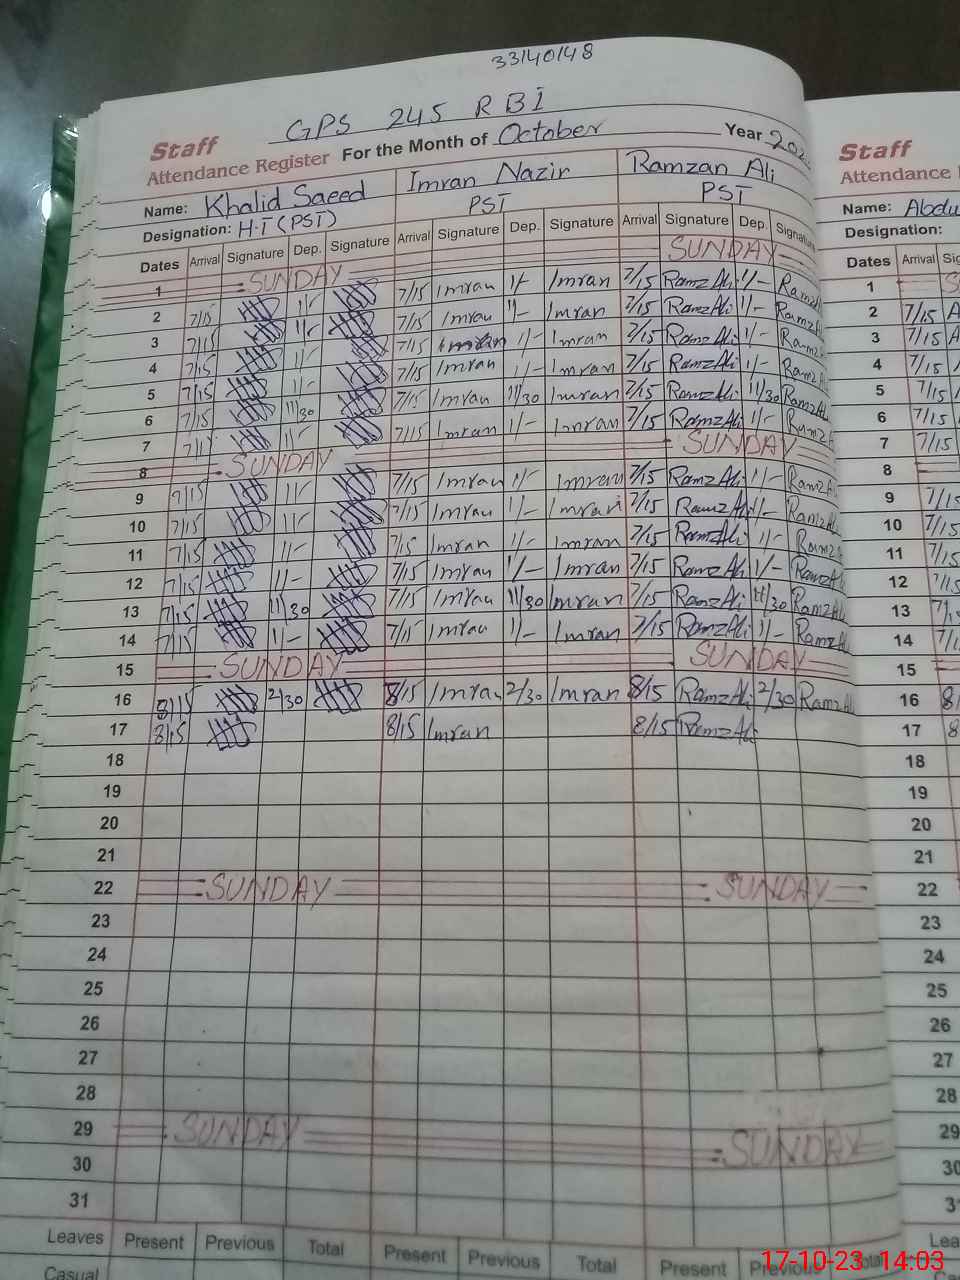 33140148
GPS 245 RBI
Staff
Attendance Register For the Month of October Year
Name: Khalid Saeed Imran Nazir Ramzan Ali
Designation: H.T (PST) PST PST
Dates Arrival Signature Dep. Signature Arrival Signature Dep. Signature Arrival Signature Dep. Signature
1 SUNDAY SUNDAY
2 7/15 1/- 7/15 Imran 1/- Imran 7/15 RamzAli 1/-
3 7/15 1/- 7/15 Imran 1/- Imran 7/15 RamzAli 1/-
4 7/15 1/- 7/15 Imran 1/- Imran 7/15 RamzAli 1/-
5 7/15 1/- 7/15 Imran 1/- Imran 7/15 RamzAli 1/-
6 7/15 11/30 7/15 Imran 11/30 Imran 7/15 RamzAli 11/30 RamzAli
7 7/15 1/- 7/15 Imran 1/- Imran 7/15 RamzAli 1/-
8 SUNDAY SUNDAY
9 7/15 1/- 7/15 Imran 1/- Imran 7/15 RamzAli 1/-
10 7/15 1/- 7/15 Imran 1/- Imran 7/15 RamzAli 1/-
11 7/15 1/- 7/15 Imran 1/- Imran 7/15 RamzAli 1/-
12 7/15 1/- 7/15 Imran 1/- Imran 7/15 RamzAli 1/- RamzAli
13 7/15 11/30 7/15 Imran 11/30 Imran 7/15 RamzAli 11/30 RamzAli
14 7/15 1/- 7/15 Imran 1/- Imran 7/15 RamzAli 1/- RamzAli
15 SUNDAY SUNDAY
16 8/15 2/30 8/15 Imran 2/30 Imran 8/15 RamzAli 2/30 RamzAli
17 8/15 8/15 Imran 8/15 RamzAli
18
19
20
21
22 SUNDAY SUNDAY
23
24
25
26
27
28
29 SUNDAY SUNDAY
30
31
Leaves Present Previous Total Present Previous Total Present Previous Total
Casual
Staff
Attendance
Name:
Designation:
Dates Arrival
1
2 7/15
3 7/15
4 7/15
5 7/15
6 7/15
7 7/15
8
9 7/15
10 7/15
11 7/15
12 7/15
13
14
15
16
17
18
19
20
21
22
23
24
25
26
27
28
29
30
17-10-23 14:03